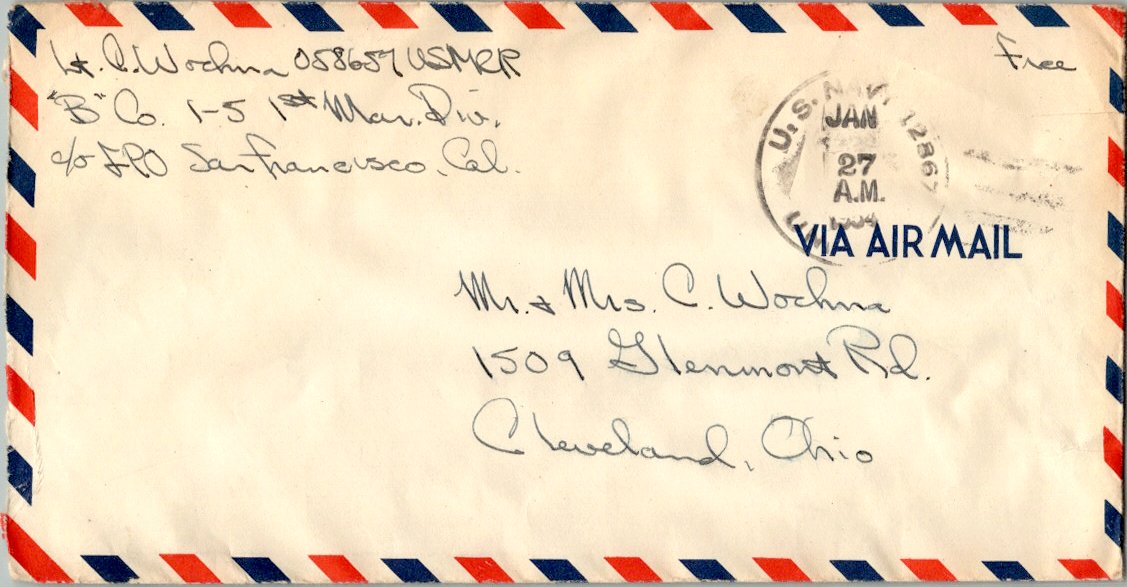 Lt. C. Wochna 058657 USMCR
"B" Co. 1-5 1st Mar. Div.
c/o FPO San Francisco, Cal.
Free
U.S. NAVY 12867
JAN
27
A.M.
VIA AIR MAIL
Mr. & Mrs. C. Wochna
1509 Glenmont Rd.
Cleveland, Ohio